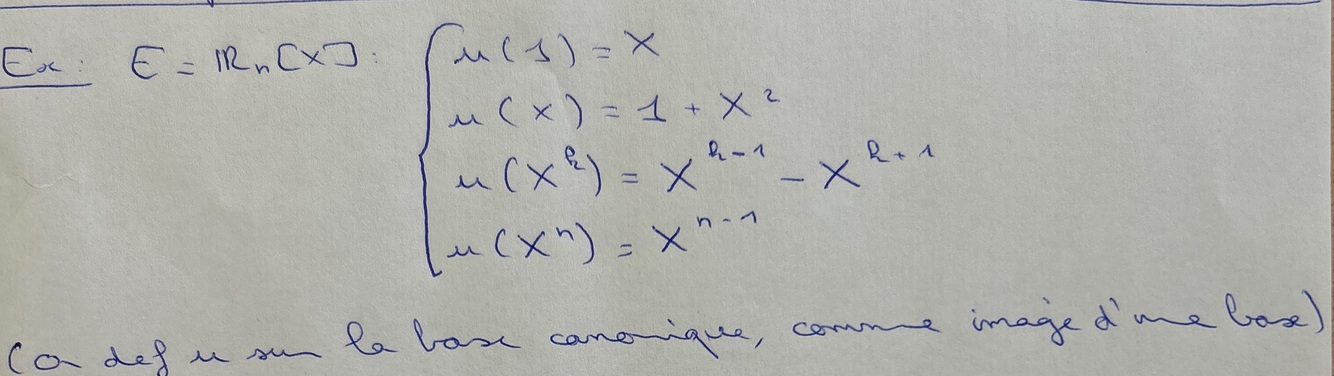 Ex: E = ℝₙ[X]: { u(1) = X
u(X) = 1 + X²
u(Xᵏ) = Xᵏ⁻¹ - Xᵏ⁺¹
u(Xⁿ) = Xⁿ⁻¹
(on def u sur la base canonique, comme image d'une base)